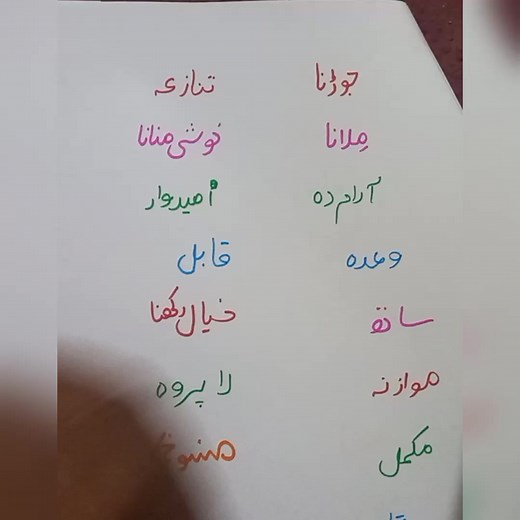 جوڑنا تنازعہ
مِلانا خوشی منانا
آرام دہ اُمیدوار
وعدہ قابل
ساتھ خیال رکھنا
موازنہ لا پروہ
مکمل